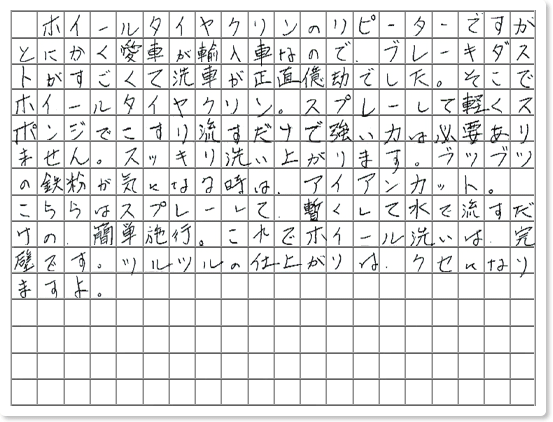 ホイールタイヤクリンのリピーターですが
とにかく愛車が輸入車なので、ブレーキダス
トがすごくて洗車が正直億劫でした。そこで
ホイールタイヤクリン。スプレーして軽くス
ポンジでこすり流すだけで強い力は必要あり
ません。スッキリ洗い上がります。ブツブツ
の鉄粉が気になる時は、アイアンカット。
こちらはスプレーして、暫くして水で流すだ
けの、簡単施行。これでホイール洗いは、完
璧です。ツルツルの仕上がりは、クセになり
ますよ。